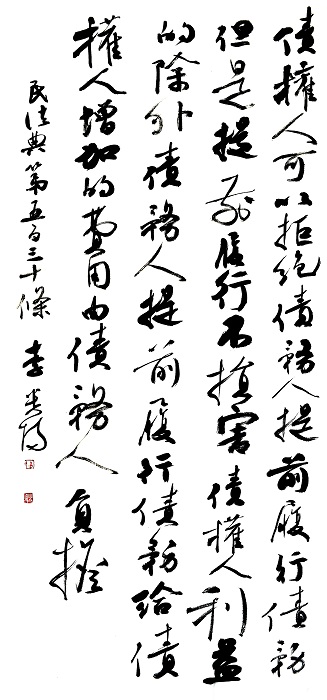 債權人可以拒絕債務人提前履行債務
但是提前履行不損害債權人利益
的除外債務人提前履行債務給債
權人增加的費用由債務人負擔
民法典第五百三十條 李